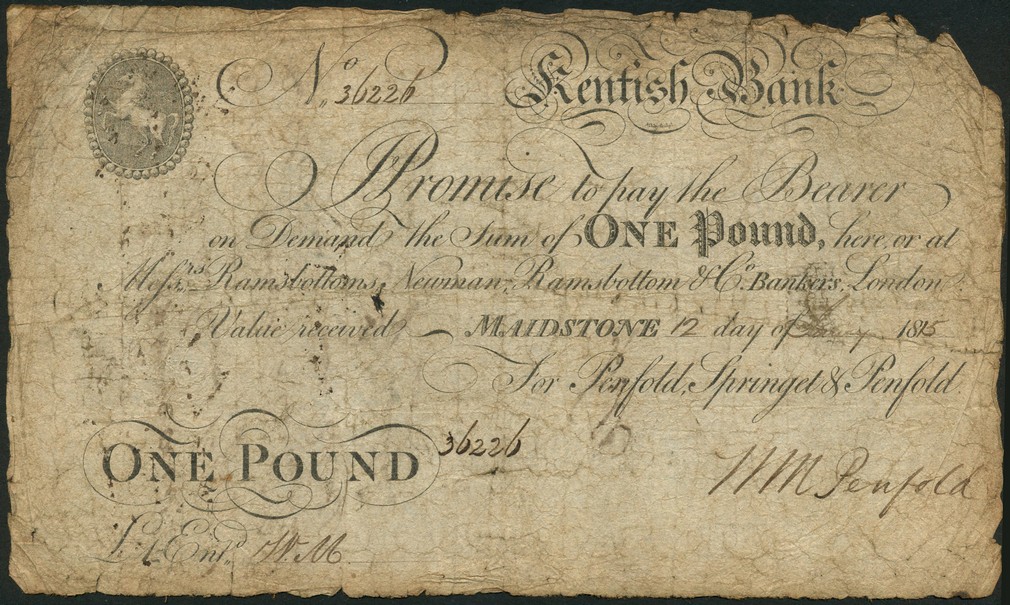 No 36226 Kentish Bank
I Promise to pay the Bearer
on Demand the Sum of ONE Pound, here, or at
Messrs Ramsbottoms, Newman, Ramsbottom & Co. Bankers, London
Value received MAIDSTONE 12 day of 1815
For Penfold, Springet & Penfold.
ONE POUND 36226
Wm Penfold
Entd W. M